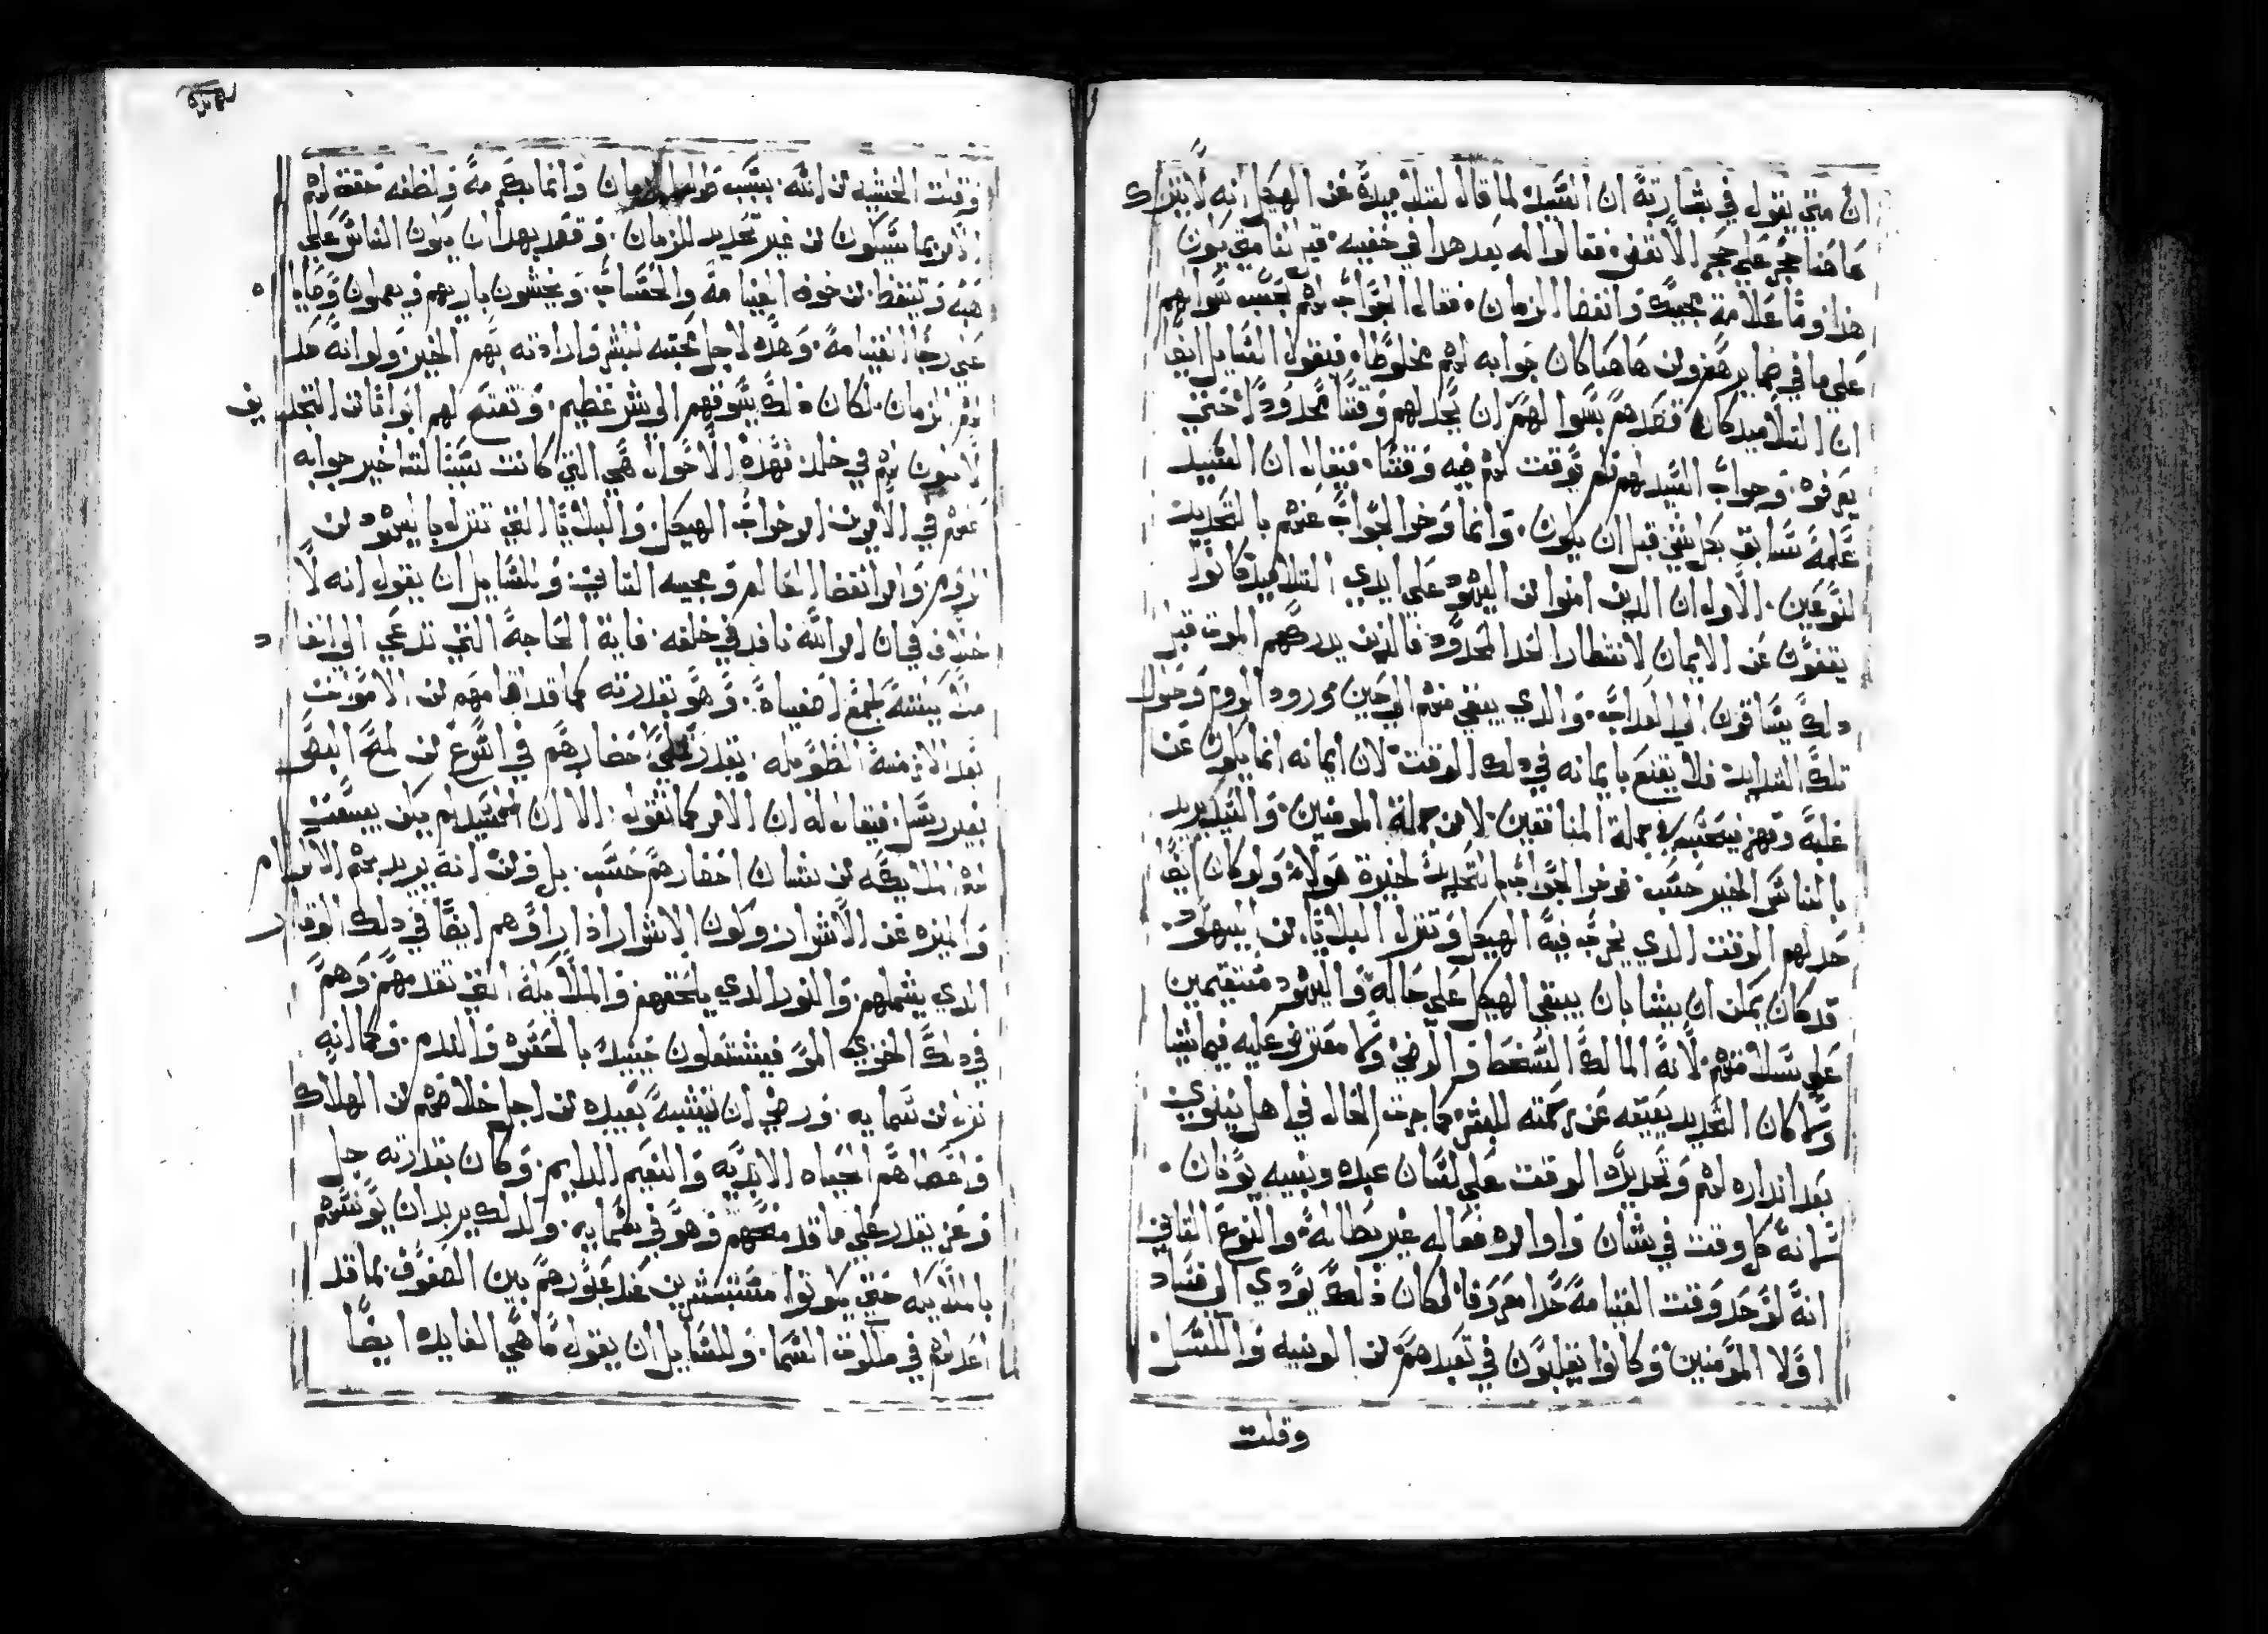 ان متي يقول في بشارته ان السيد لما قال لتلاميده عن الهيكل انه لا يترك
هاهنا حجر علي حجر الا نقض. فقالوا له بعد هدا في خفيه. قل لنا متي يكون
هذا وما علامة مجيك وانقضا الزمان. فقال الجواب لهم بحسب سوالهم
علي ما في ضمايرهم ومن هاهنا كان جوابه لهم مخلوطا. فيقول السايل ايضا
ان التلاميد كان قصدهم بسوالهم ان يحد لهم وقتا محدودا حتي
يعرفوه. وجواب السيد لهم لم يوقت لهم فيه وقتا. فيقال ان السيد
علمه سابق بكل شي قبل ان يكون. وانما ورخوا الجواب عنهم بالتحديد
لنوعين. الاول ان الدين امنوا من اليهود علي ايدي التلاميد كانوا
يقفون عن الايمان لانتظار الحد المحدود فالدين يدركهم الموت قبل
دلك يساقون الي العداب. والدي يبقي منهم الي حين ورود الروم وحلول
تلك الشدايد فلا يقنع بايمانه في دلك الوقت. لان ايمانه انما يكون عن
غلبة وقهر فيحسب في جملة المنافقين. لا من جملة المومنين. والسيد يريد
بالناس الخير حسب. فورخوا الجواب بالتحديد لخيرة هولاء ولو كان ايضا
حد لهم الوقت الدي يخرب فيه الهيكل وتنزل البلايا من اليهود.
قد كان يمكن ان يشا بان يبقي الهيكل علي حاله واليهود مستقيمين
علي تسلطهم. لانه المالك السخط والرضي ولا معترض عليه فيما يشا
ولا كان التحديد يعيقه عن رحمته للبشر. كما جرت الحال في اهل نينوي
بعد انداره لهم وتحديده الوقت علي لسان عبده ونبيه يونان.
ثم انه كل وقت في شان واوامره فعاله غير بطاله. والنوع الثاني
انه لو حد وقت القيامه حدا معروفا. لكان ذلك يودي الي فساد
اولا المومنين. وكانوا يغلبون في تعبدهم من الونيه والكسل
وقلت
وقلت الخشيه من الله. بسبب طول الزمان وانما بحكمه ولطفه حقق لهم
الامر بما سيكون من غير تحديد للزمان. وقصد بهدا ان يكون الناس علي
هبه وتيقظ. من خوف القيامة والحساب. ويخشون باريهم ويعملون وصايا ه
علي رجا القيامة. وهده لاجل محبته للبشر وارادته بهم الخير. ولو انه حد
لهم الزمان. لكان ذلك يسوقهم الي شر عظيم. وتفتح لهم ابوابا من التجديف
لا تكون لهم في خلد. فهذه الاحوال هي التي كانت سببا لتاخير جوابه
عنهم في الامرين امر خراب الهيكل. والبلايا التي تنزل باليهود من
الروم. وامر انقضا العالم ومجيه الثاني. وللسايل ان يقول انه لا
خلاف في ان امر الله نافد في خلقه. فاية الحاجة التي تدعي الي انفا د
ملايكته لجمع اصفياه. وهو بقدرته كما قد اقامهم من الاموات
بعد الازمنة الطويله. يقدر علي احضارهم في اسرع من لمح البصر
بغير رسل. فيقال له ان الامر كما تقول. الا ان السيد لم يكن يبعث
لهم الملايكه من شان احضارهم حسب. بل ومن انه يريد بهم الاكرام
والميزه عن الاشرار. وكون الاشرار اذا راوهم ايضا في دلك الوقار
الدي يشملهم. والنور الدي يلحقهم. والملايكة التي تقدمهم. وهم
في دلك الخزي المر فيشتعلون حينيد بالحسره والندم. وكما انه
نزل من سمايه. ورضي ان يتشبه بعبيده من اجل خلاصهم من الهلاك
واعطاهم الحياه الابديه والنعيم الدايم. وكان بقدرته جل
وعز يقدر علي ما قد منحهم وهو في سمايه. ولدلك يريد ان يونسهم
بالملايكه حتي يكونوا مستبشرين عند عبورهم بين الصفوف بما قد
اعد لهم في ملكوت السما. وللسايل ان يقول ما هي الفايده ايضا